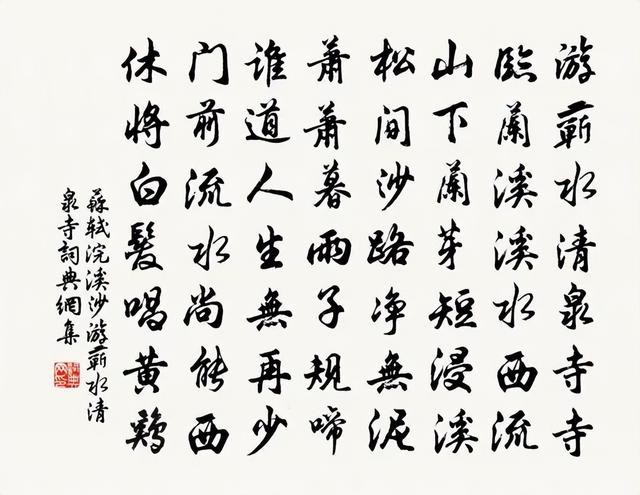 游蕲水清泉寺寺
临蘭溪溪水西流
山下蘭芽短浸溪
松间沙路净無泥
萧萧暮雨子规啼
谁道人生無再少
门前流水尚能西
休将白髮唱黄鸡
蘇轼浣溪沙游蕲水清
泉寺詞典網集